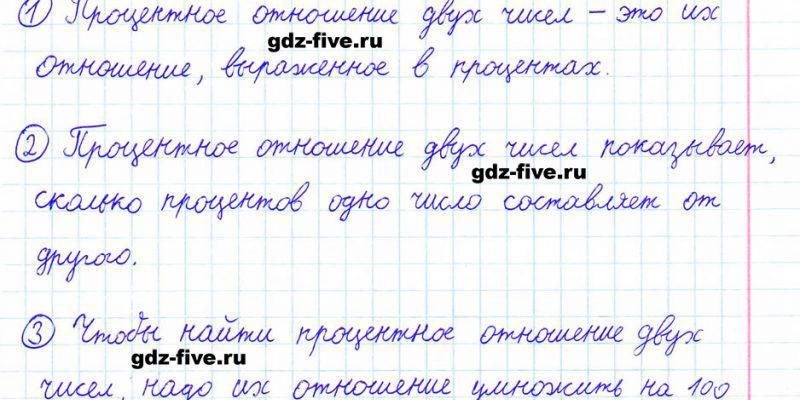 1 Процентное отношение двух чисел – это их
gdz-five.ru
отношение, выраженное в процентах.
2 Процентное отношение двух чисел показывает,
gdz-five.ru
сколько процентов одно число составляет от
другого.
3 Чтобы найти процентное отношение двух
gdz-five.ru
чисел, надо их отношение умножить на 100